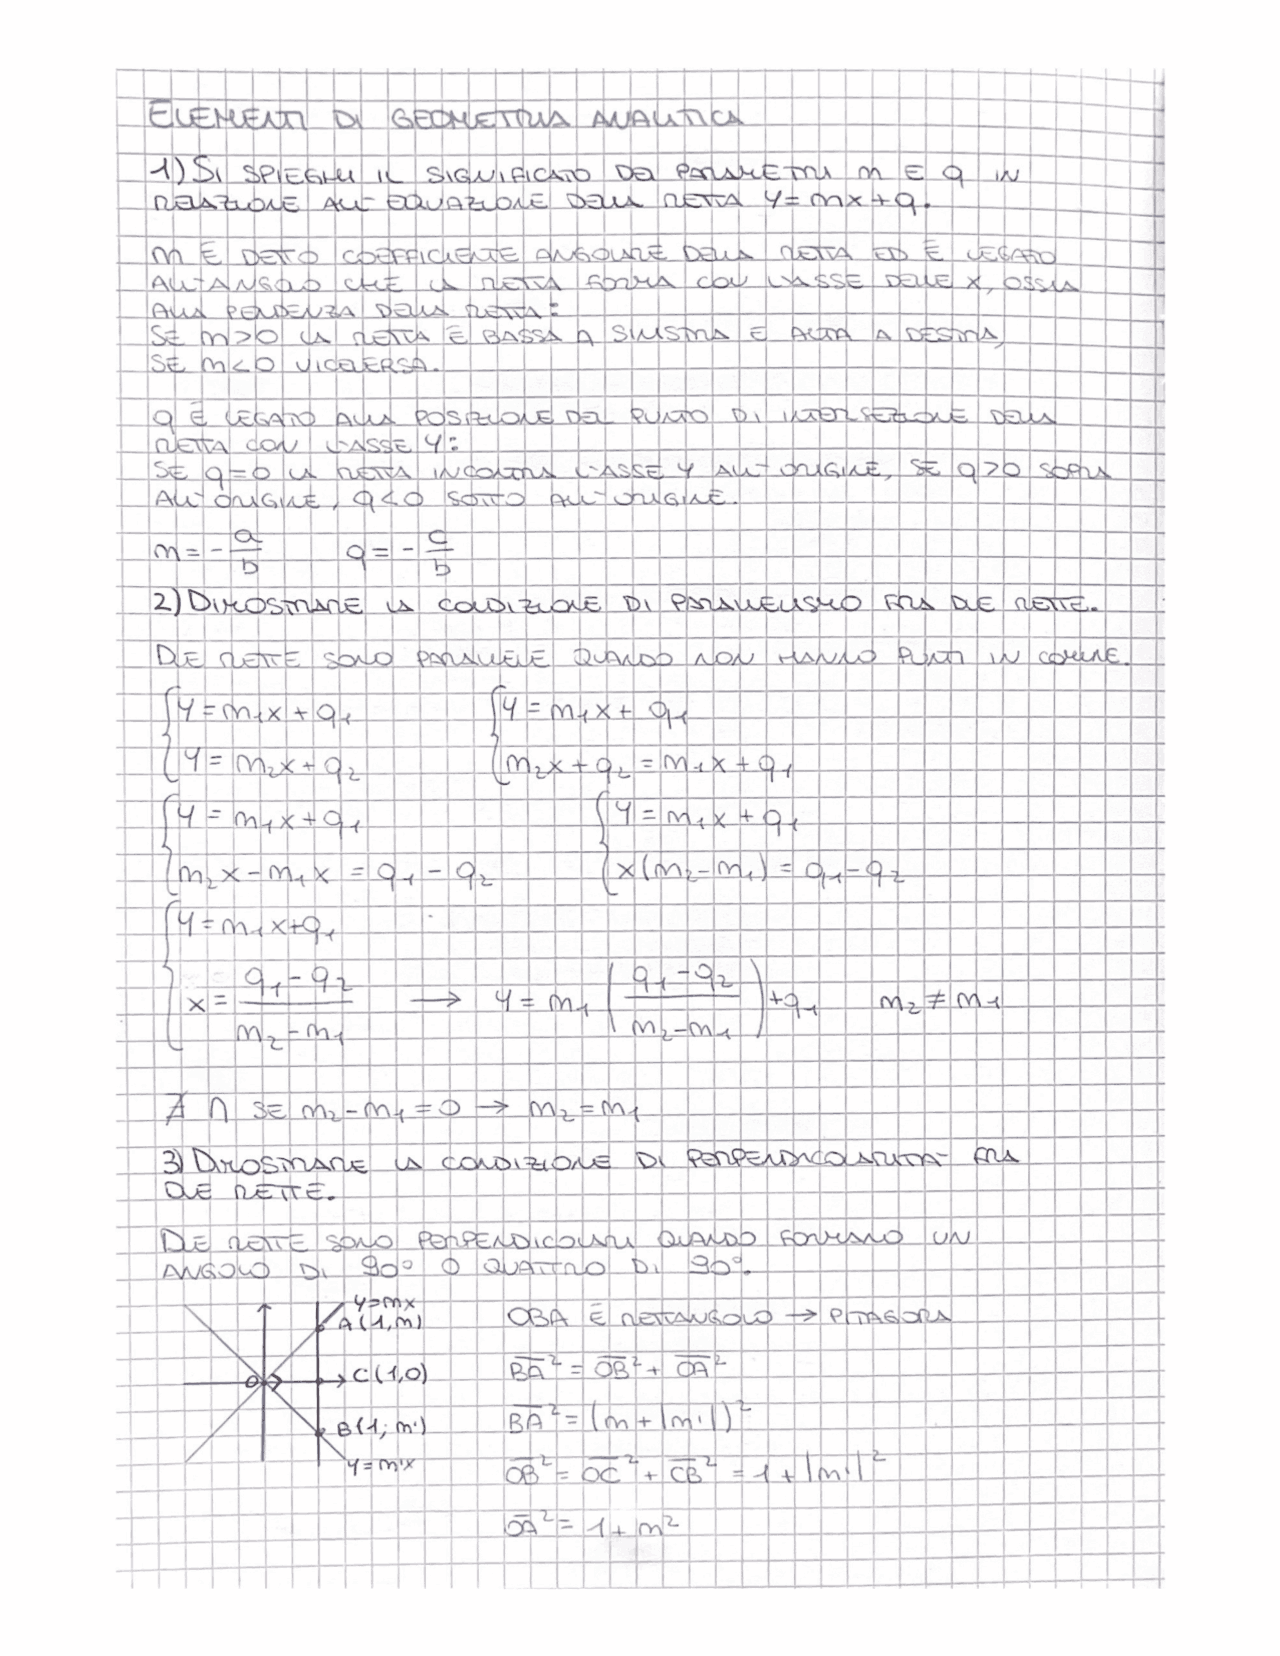 ELEMENTI DI GEOMETRIA ANALITICA
1) SI SPIEGHI IL SIGNIFICATO DEI PARAMETRI m E q IN
RELAZIONE ALL'EQUAZIONE DELLA RETTA y=mx+q.
m È DETTO COEFFICIENTE ANGOLARE DELLA RETTA ED È LEGATO
ALL'ANGOLO CHE LA RETTA FORMA CON L'ASSE DELLE X, OSSIA
ALLA PENDENZA DELLA RETTA:
SE m>0 LA RETTA È BASSA A SINISTRA E ALTA A DESTRA,
SE m<0 VICEVERSA.
q È LEGATO ALLA POSIZIONE DEL PUNTO DI INTERSEZIONE DELLA
RETTA CON L'ASSE y:
SE q=0 LA RETTA INCONTRA L'ASSE y ALL'ORIGINE, SE q>0 SOPRA
ALL'ORIGINE, q<0 SOTTO ALL'ORIGINE.
m = - a/b q = - c/b
2) DIMOSTRARE LA CONDIZIONE DI PARALLELISMO FRA DUE RETTE.
DUE RETTE SONO PARALLELE QUANDO NON HANNO PUNTI IN COMUNE.
{y = m₁x + q₁ {y = m₁x + q₁
{y = m₂x + q₂ {m₂x + q₂ = m₁x + q₁
{y = m₁x + q₁ {y = m₁x + q₁
{m₂x - m₁x = q₁ - q₂ {x(m₂-m₁) = q₁-q₂
{y = m₁x+q₁
{x = (q₁-q₂)/(m₂-m₁) → y = m₁ ((q₁-q₂)/(m₂-m₁)) + q₁ m₂ ≠ m₁
∄ ∩ SE m₂-m₁=0 → m₂=m₁
3) DIMOSTRARE LA CONDIZIONE DI PERPENDICOLARITÀ FRA
DUE RETTE.
DUE RETTE SONO PERPENDICOLARI QUANDO FORMANO UN
ANGOLO DI 90° O QUATTRO DI 90°.
y=mx
A(1,m)
C(1,0)
O
B(1;m')
y=m'x
OBA È RETTANGOLO → PITAGORA
BA² = OB² + OA²
BA² = (m+|m'|)²
OB² = OC² + CB² = 1+|m'|²
OA² = 1+m²